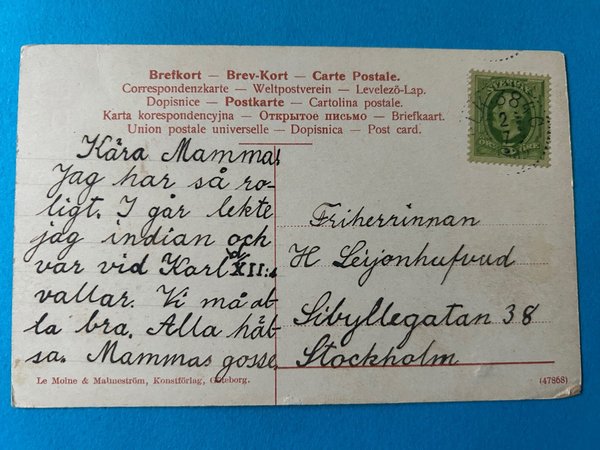 Brefkort — Brev-Kort — Carte Postale.
Correspondenzkarte — Weltpostverein — Levelező-Lap.
Dopisnice — Postkarte — Cartolina postale.
Karta korespondencyjna — Открытое письмо — Briefkaart.
Union postale universelle — Dopisnica — Post card.
Kära Mamma!
Jag har så ro-
ligt. I går lekte
jag indian och
var vid Karl d. XII:s
vallar. Vi må al-
la bra. Alla häl-
sa. Mammas gosse.
Friherrinnan
H Leijonhufvud
Sibyllegatan 38
Stockholm
Le Moine & Malmeström, Konstförlag, Göteborg.
(47868)